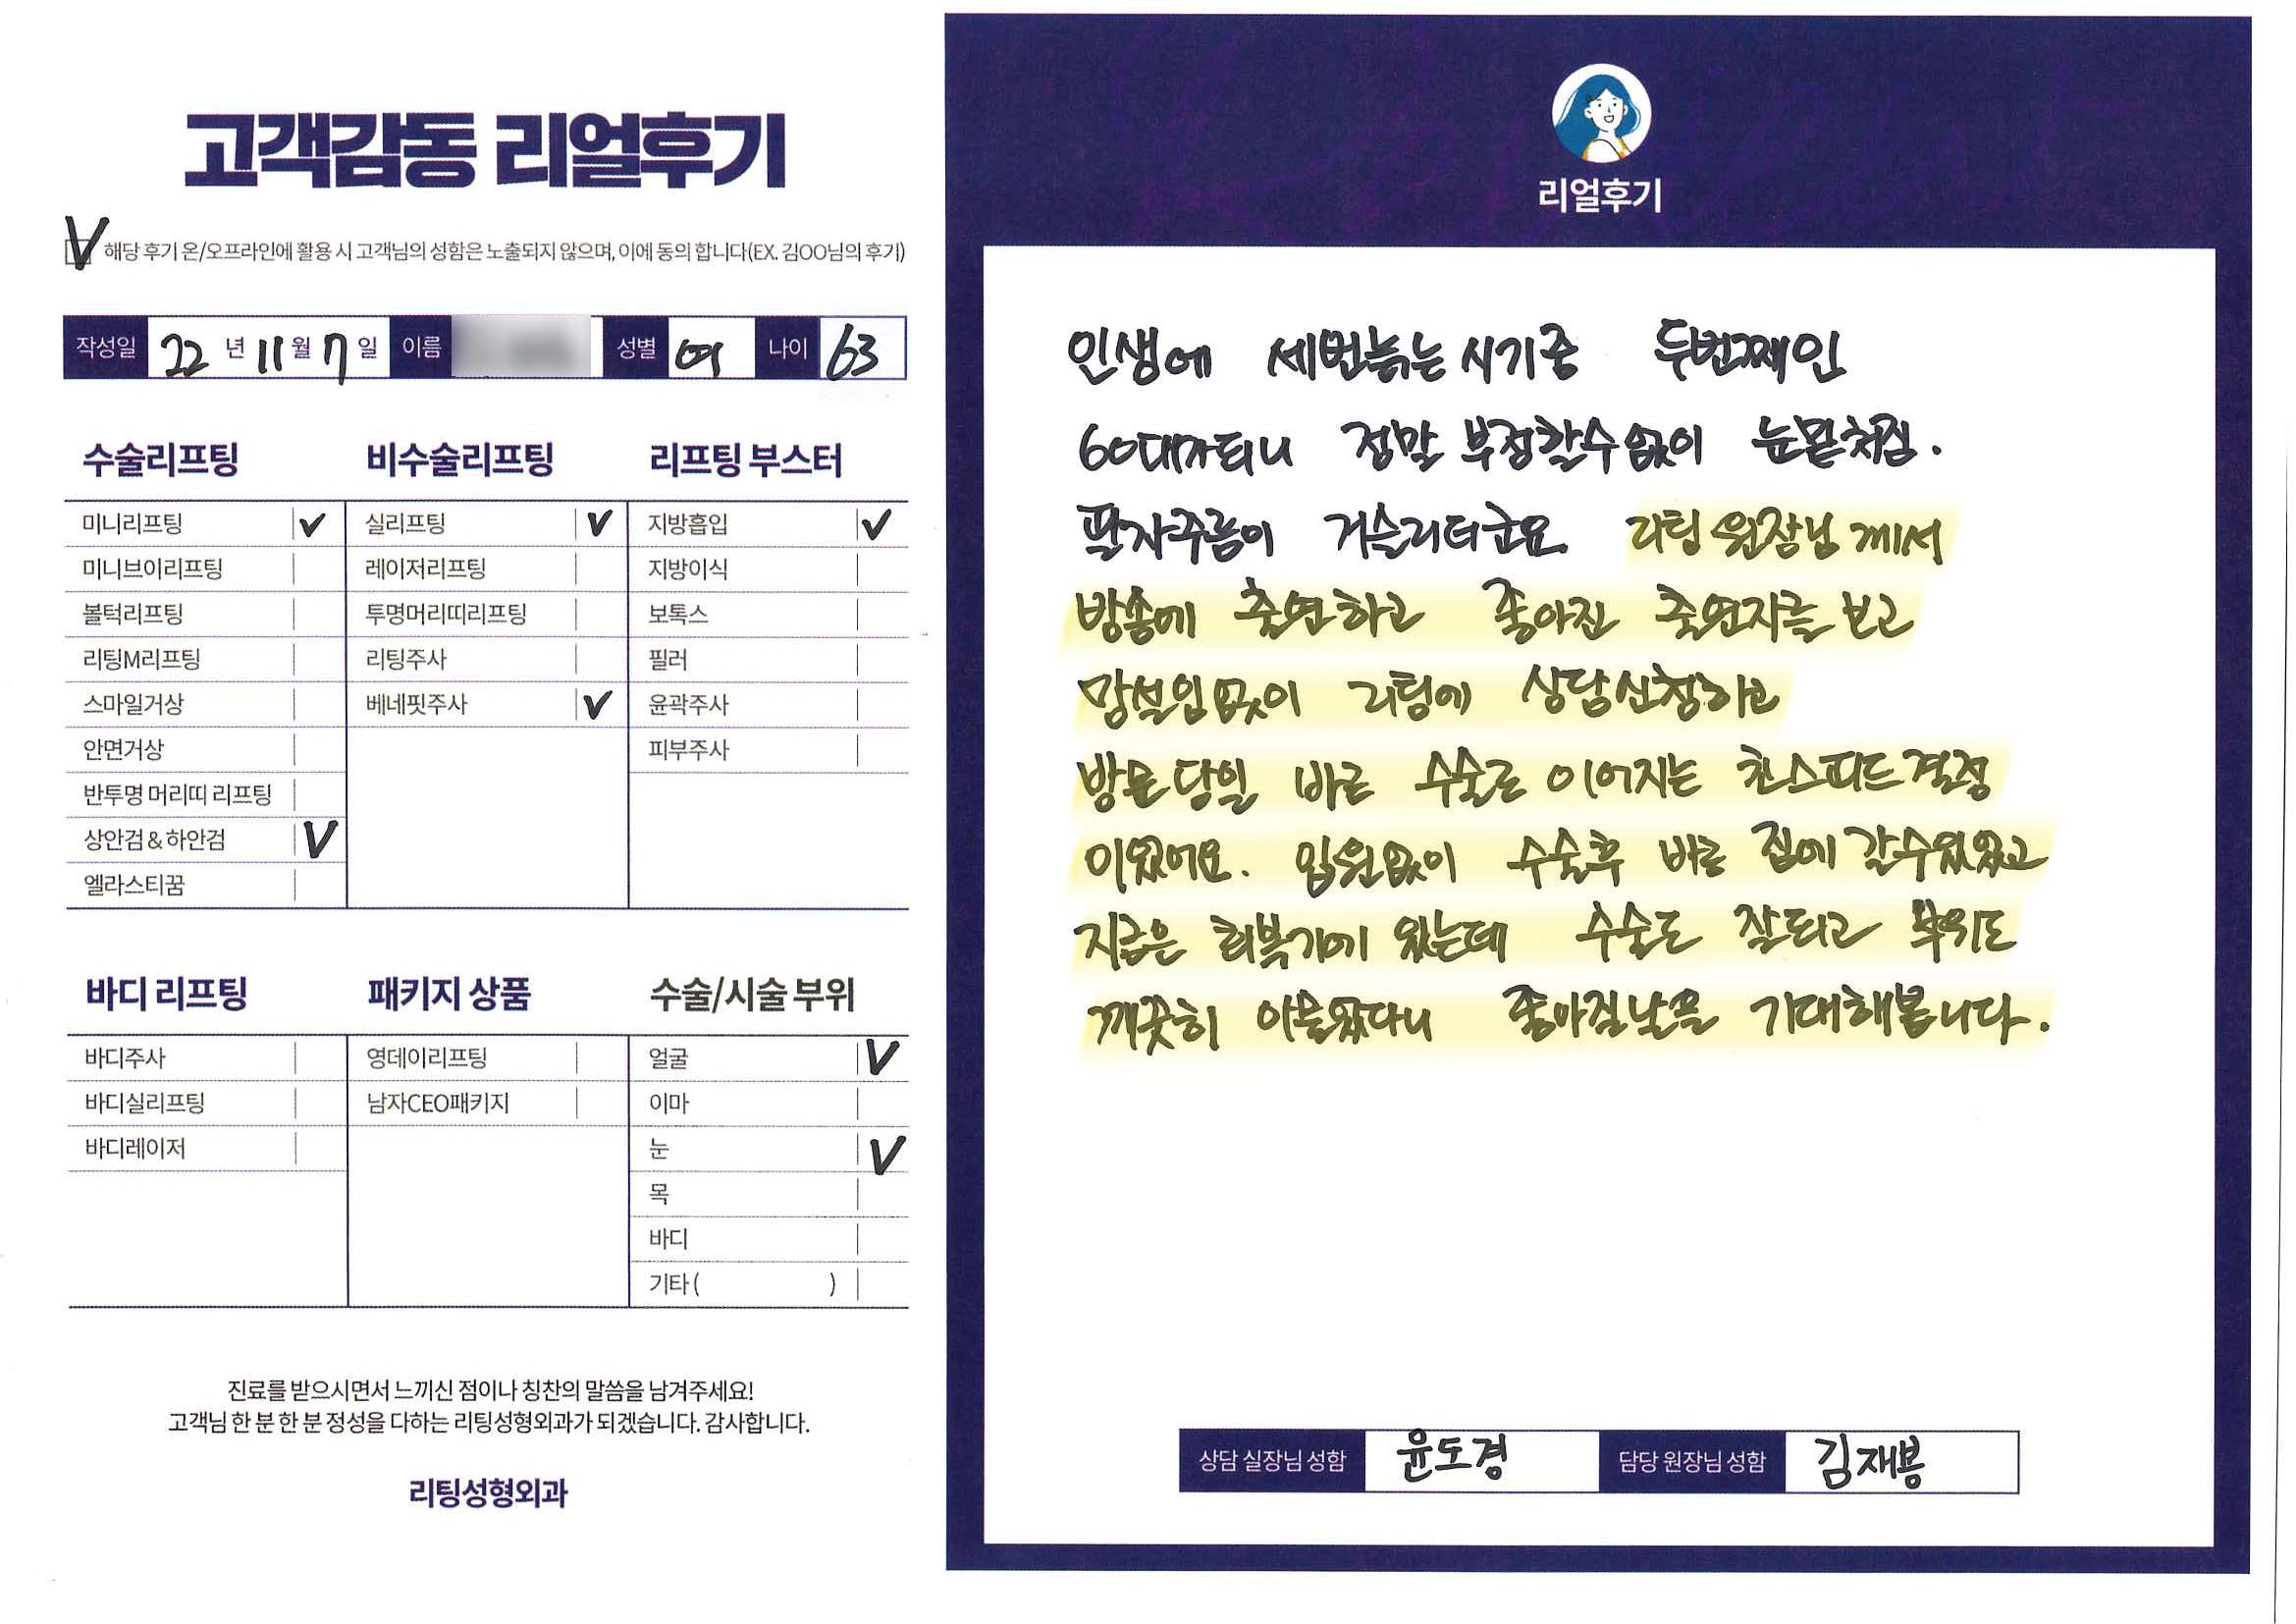 고객감동 리얼후기
V 해당 후기 온/오프라인에 활용 시 고객님의 성함은 노출되지 않으며, 이에 동의 합니다(EX. 김OO님의 후기)
작성일 22 년 11 월 7 일 이름 성별 여 나이 63
수술리프팅
미니리프팅 V
미니브이리프팅
볼턱리프팅
리팅M리프팅
스마일거상
안면거상
반투명 머리띠 리프팅
상안검 & 하안검 V
엘라스티꿈
비수술리프팅
실리프팅 V
레이저리프팅
투명머리띠리프팅
리팅주사
베네핏주사 V
리프팅 부스터
지방흡입 V
지방이식
보톡스
필러
윤곽주사
피부주사
바디 리프팅
바디주사
바디실리프팅
바디레이저
패키지 상품
영데이리프팅
남자CEO패키지
수술/시술 부위
얼굴 V
이마
눈 V
목
바디
기타 ( )
진료를 받으시면서 느끼신 점이나 칭찬의 말씀을 남겨주세요!
고객님 한 분 한 분 정성을 다하는 리팅성형외과가 되겠습니다. 감사합니다.
리팅성형외과
리얼후기
인생에 세번늙는 시기중 두번째인
60대가되니 정말 부정할수없이 눈밑처짐.
팔자주름이 거슬리더군요 리팅 원장님께서
방송에 출연하고 좋아진 출연자를 보고
망설임없이 리팅에 상담신청하고
방문당일 바로 수술로 이어지는 초스피드결정
이었어요. 입원없이 수술후 바로 집에 갈수있었고
지금은 회복기에 있는데 수술도 잘되고 부위도
깨끗히 아물었다니 좋아질날을 기대해봅니다.
상담 실장님 성함 윤도경 담당 원장님 성함 김재봉